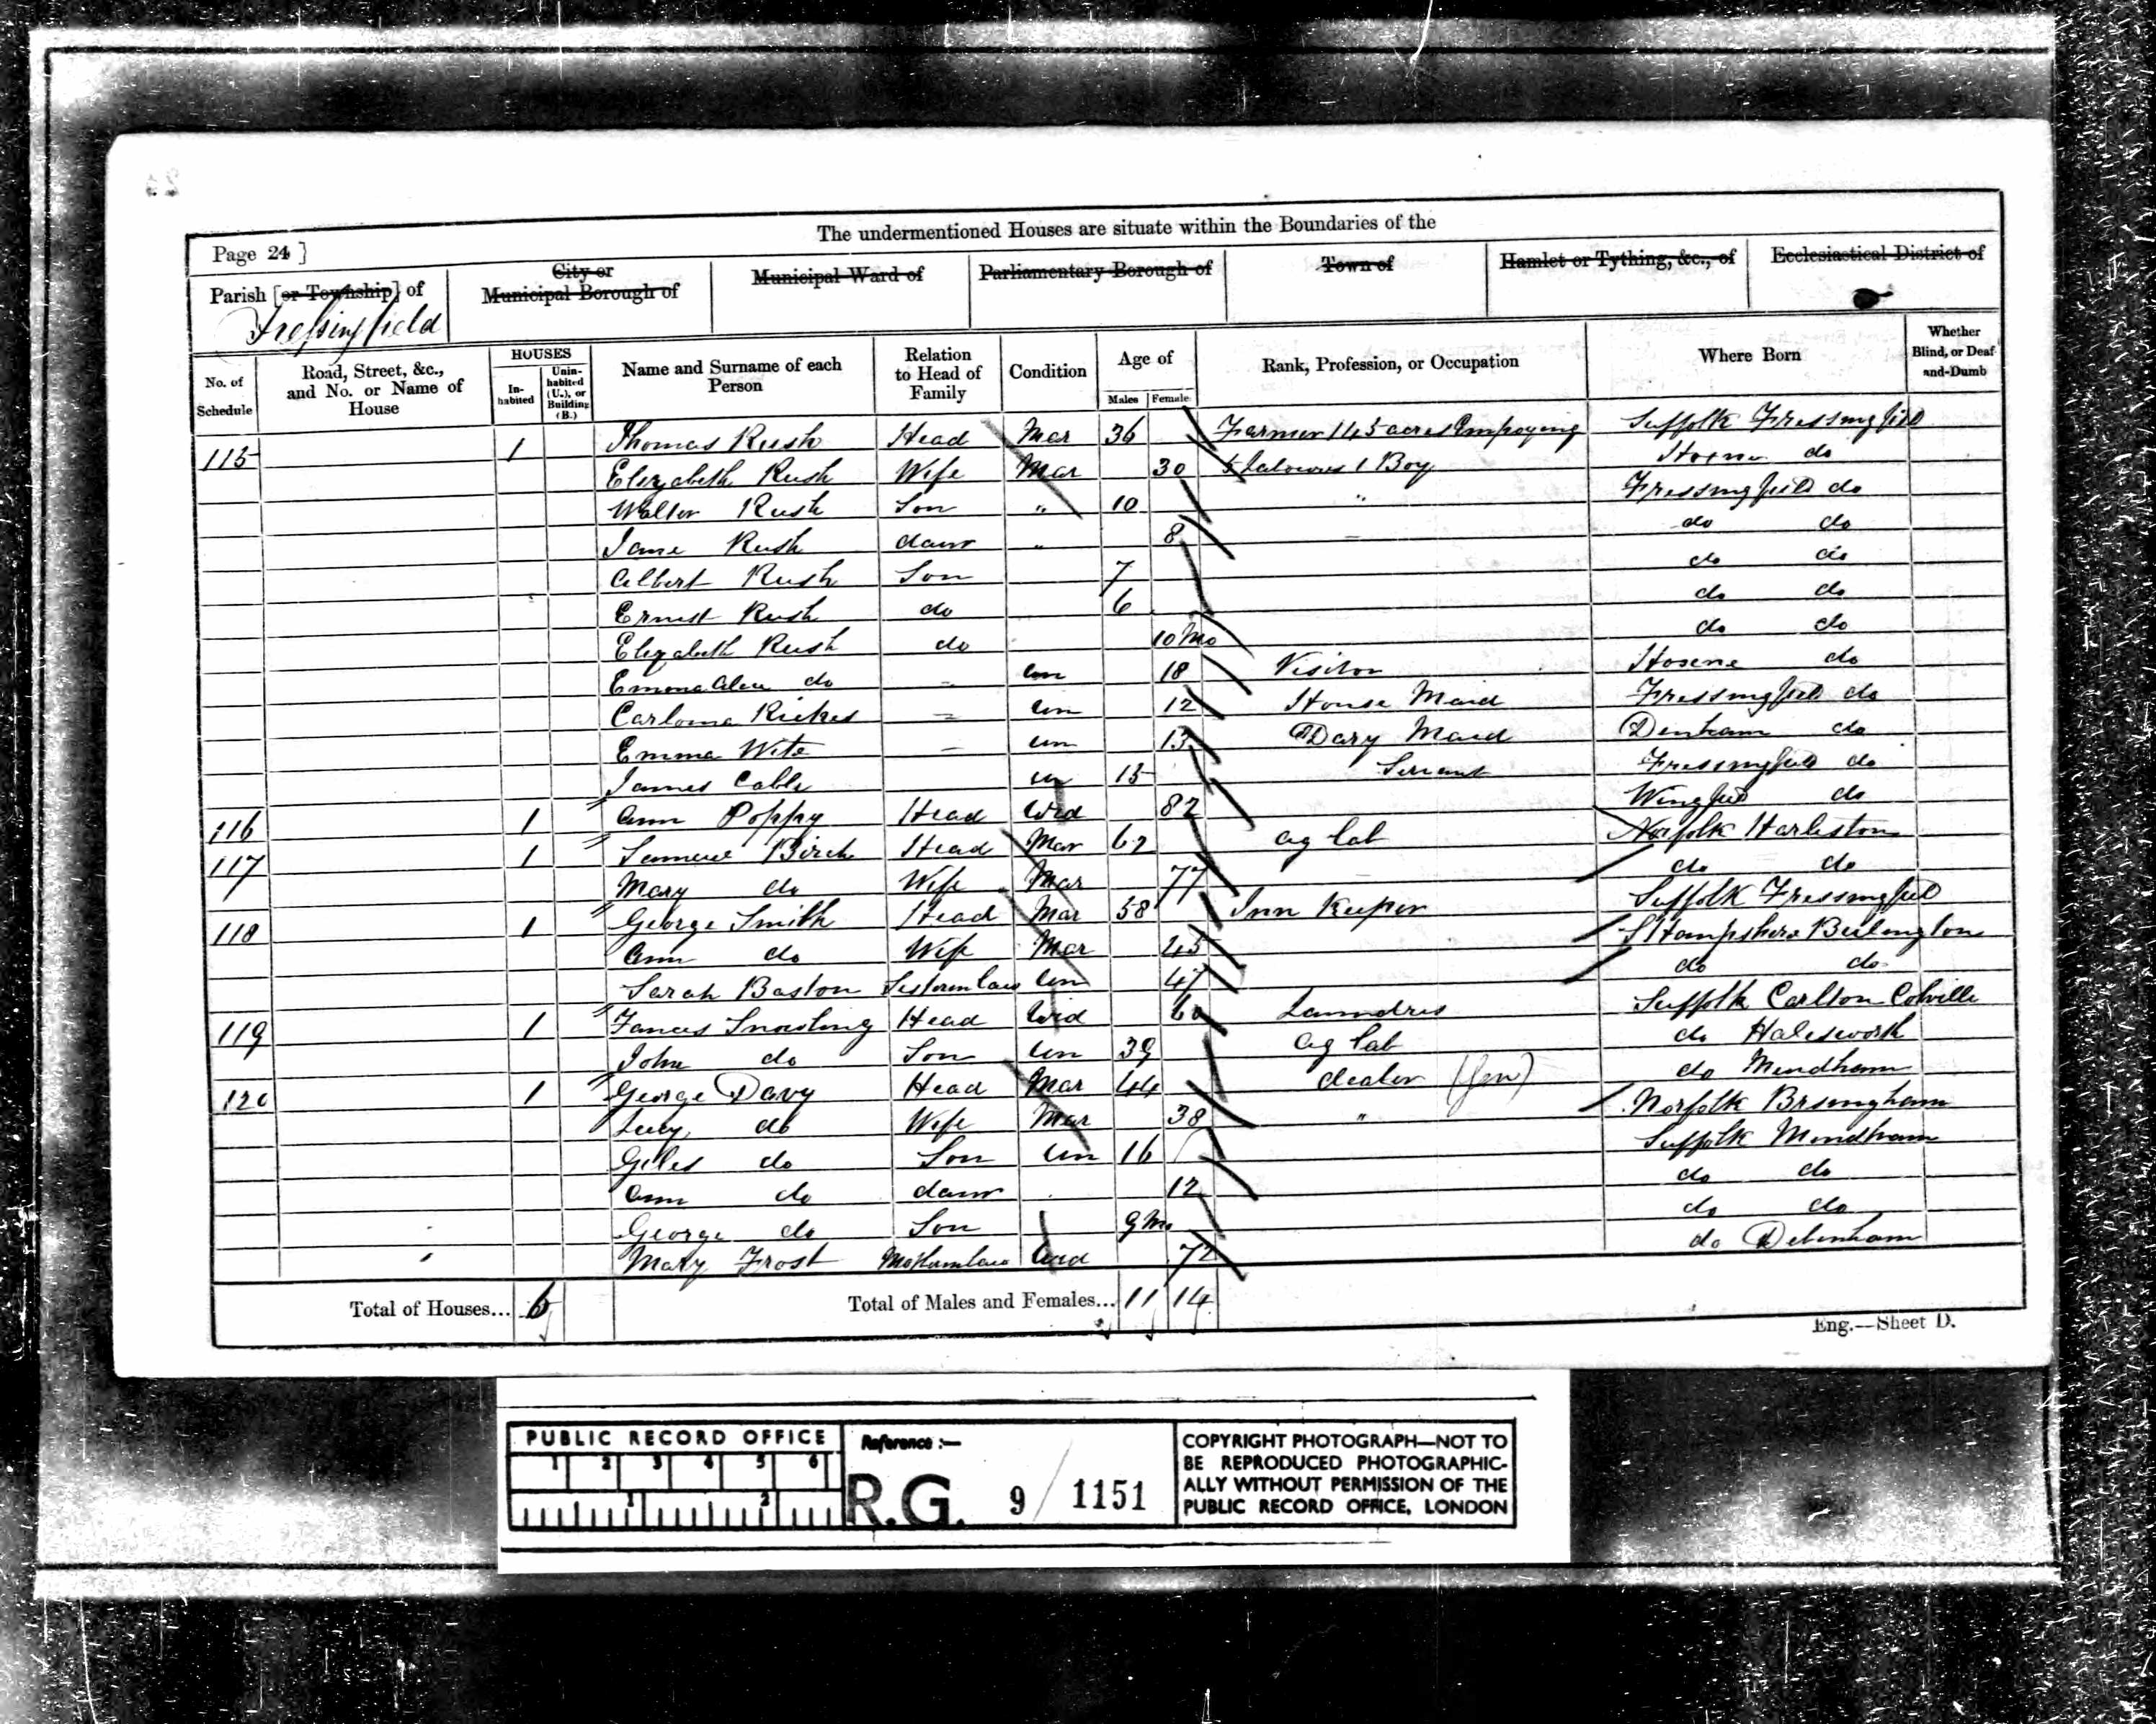 The undermentioned Houses are situate within the Boundaries of the
Page 24 ]
Parish [or Township] of Fressingfield
City or Municipal Borough of
Municipal Ward of
Parliamentary Borough of
Town of
Hamlet or Tything, &c., of
Ecclesiastical District of
No. of Schedule
Road, Street, &c., and No. or Name of House
HOUSES
In-habited
Unin-habited (U.), or Building (B.)
Name and Surname of each Person
Relation to Head of Family
Condition
Age of
Males Female
Rank, Profession, or Occupation
Where Born
Whether Blind, or Deaf-and-Dumb
115 1 Thomas Rush Head Mar 36 Farmer 145 acres Empoying Suffolk Fressingfield
Elizabeth Rush Wife Mar 30 5 labourers 1 Boy do
Walter Rush Son " 10 " Fressingfield do
Jane Rush daur " 8 do do
Albert Rush Son 7 do do
Ernest Rush do 6 do do
Elizabeth Rush do 10 Mo do do
Emma do un 18 Visitor Hoxne do
un 12 House Maid Fressingfield do
Emma Wite un 13 Dary Maid Denham do
James Cable un 15 Servant Fressingfield do
116 1 Ann Poppy Head Wid 82 Wingfield do
117 1 Samuel Birch Head Mar 62 ag lab Norfolk Harleston
Mary do Wife Mar 77 do do
118 1 George Smith Head Mar 58 Inn Keeper Suffolk Fressingfield
Ann do Wife Mar 45
Sarah Baston Sisterinlaw un 47 do do
119 1 Frances Snowling Head Wid 60 Laundres Suffolk Carlton Colville
John do Son un 39 ag lab do Halesworth
120 1 George Davy Head Mar 44 dealer (Gen) do Mendham
Lucy do Wife Mar 38 " Norfolk
Giles do Son un 16 Suffolk Mendham
Ann do daur 12 do do
George do Son 9 Mo do do
Mary Frost Motherinlaw Wid 72 do Debenham
Total of Houses... 6
Total of Males and Females... 11 14
Eng.—Sheet D.
PUBLIC RECORD OFFICE
1 2 3 4 5 6
1 2
Reference :—
R.G. 9/1151
COPYRIGHT PHOTOGRAPH—NOT TO
BE REPRODUCED PHOTOGRAPHIC-
ALLY WITHOUT PERMISSION OF THE
PUBLIC RECORD OFFICE, LONDON